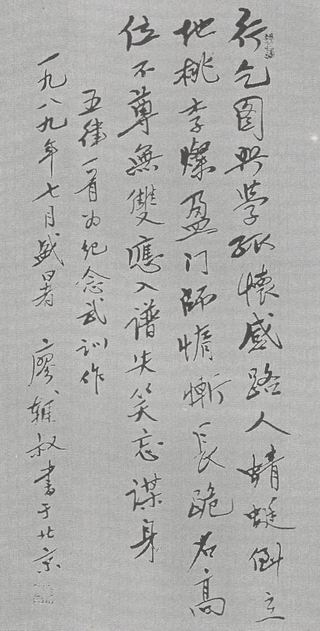 行乞图兴学孤怀感路人蜻蜓倒立
地桃李灿盈门师惰惭长跪名高
位不尊無雙應入谱失笑忘谋身
五律一首为纪念武训作
一九八九年七月盛暑 廖辅叔書于北京